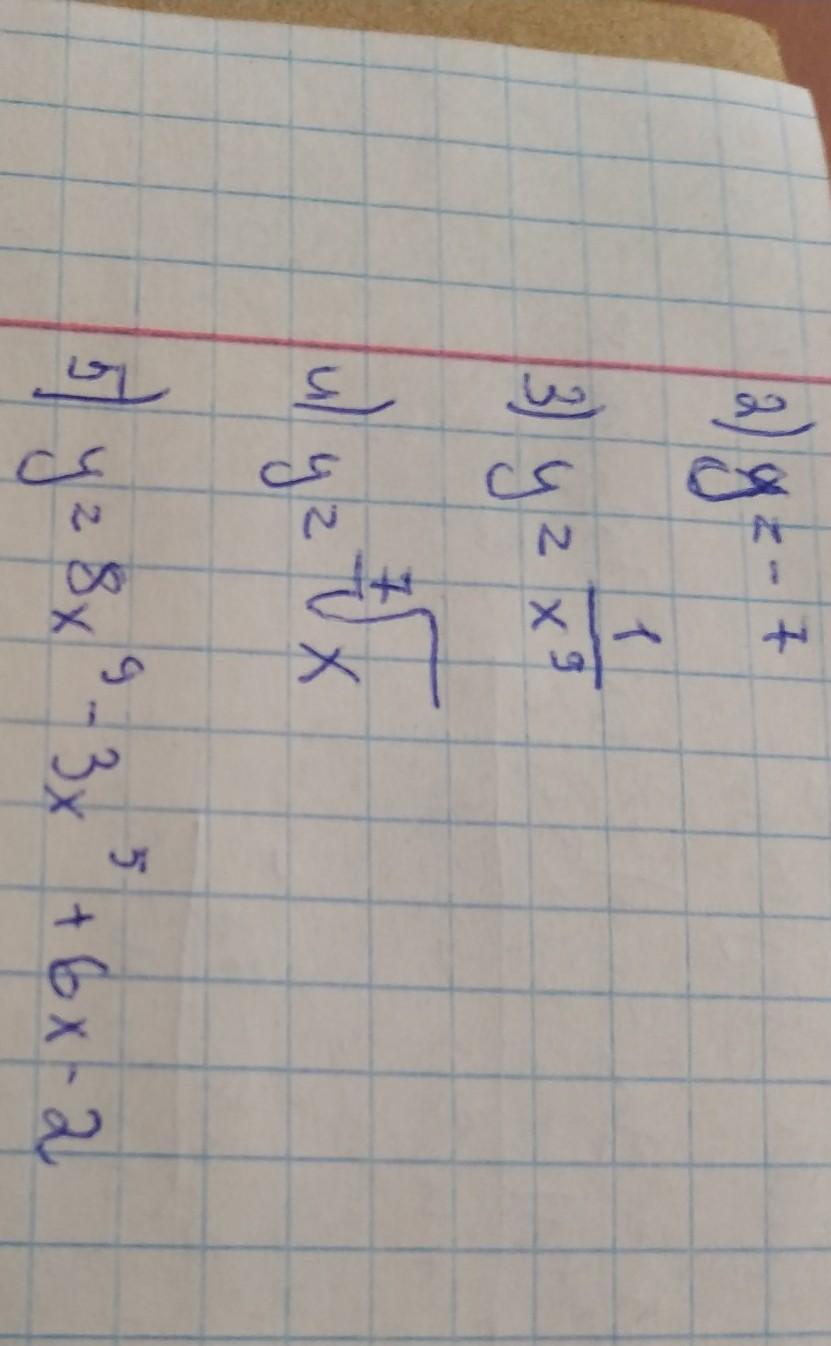 2) y = -7
3) y = 1/x⁹
4) y = ⁷√x
5) y = 8x⁹ - 3x⁵ + 6x - 2